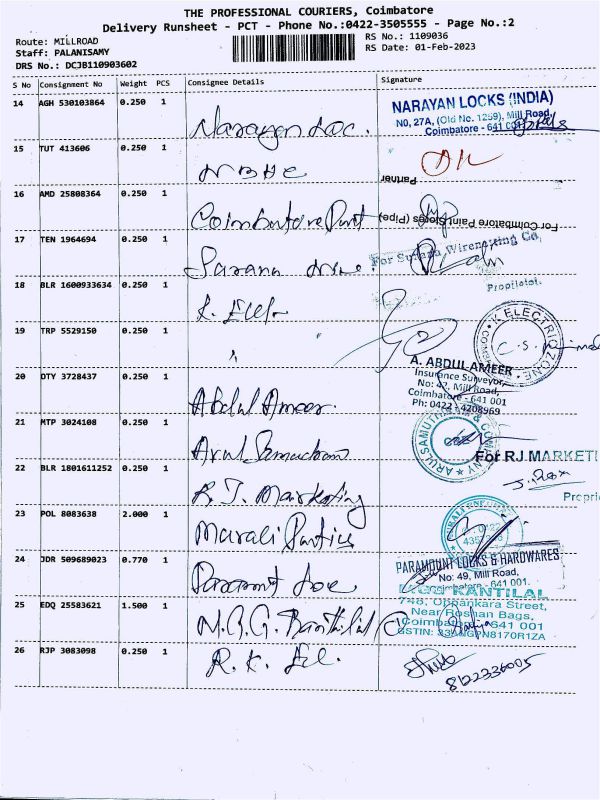 THE PROFESSIONAL COURIERS, Coimbatore
Delivery Runsheet - PCT - Phone No.:0422-3505555 - Page No.:2
Route: MILLROAD
Staff: PALANISAMY
DRS No.: DCJB110903602
RS No.: 1109036
RS Date: 01-Feb-2023
S No Consignment No Weight PCS Consignee Details Signature
14 AGH 530103864 0.250 1 Narayan Loc.
NARAYAN LOCKS (INDIA)
NO, 27A, (Old No. 1259), Mill Road,
Coimbatore - 641 001
15 TUT 413606 0.250 1 NBHC
Partner
16 AMD 25808364 0.250 1 Coimbatore Paint
For Coimbatore Paint Stores (Pipe)
17 TEN 1964694 0.250 1 Sarana
For Wirenetting Co
18 BLR 1600933634 0.250 1 K. Elec
19 TRP 5529150 0.250 1 "
K ELECTRIC ZONE
C. S.
20 DTY 3728437 0.250 1 Abdul Ameer.
A. ABDUL AMEER
Insurance Surveyor,
No: 42, Mill Road,
Coimbatore - 641 001
Ph: 0422 - 4208969
21 MTP 3024108 0.250 1 Arul Samudram
ARUL SAMUTHRAM & COMPANY
22 BLR 1801611252 0.250 1 R J. Marketing
For R.J. MARKETI
Propri
23 POL 8083638 2.000 1 Murali
24 JDR 509689023 0.770 1 Paramont Loc
PARAMOUNT LOCKS & HARDWARES
No: 49, Mill Road,
Coimbatore - 641 001.
25 EDQ 25583621 1.500 1 N.G.G. Kantilal
KANTILAL
746, Oppankara Street,
Near Roshan Bags,
Coimbatore - 641 001
26 RJP 3083098 0.250 1 R. K. El.
8122336005